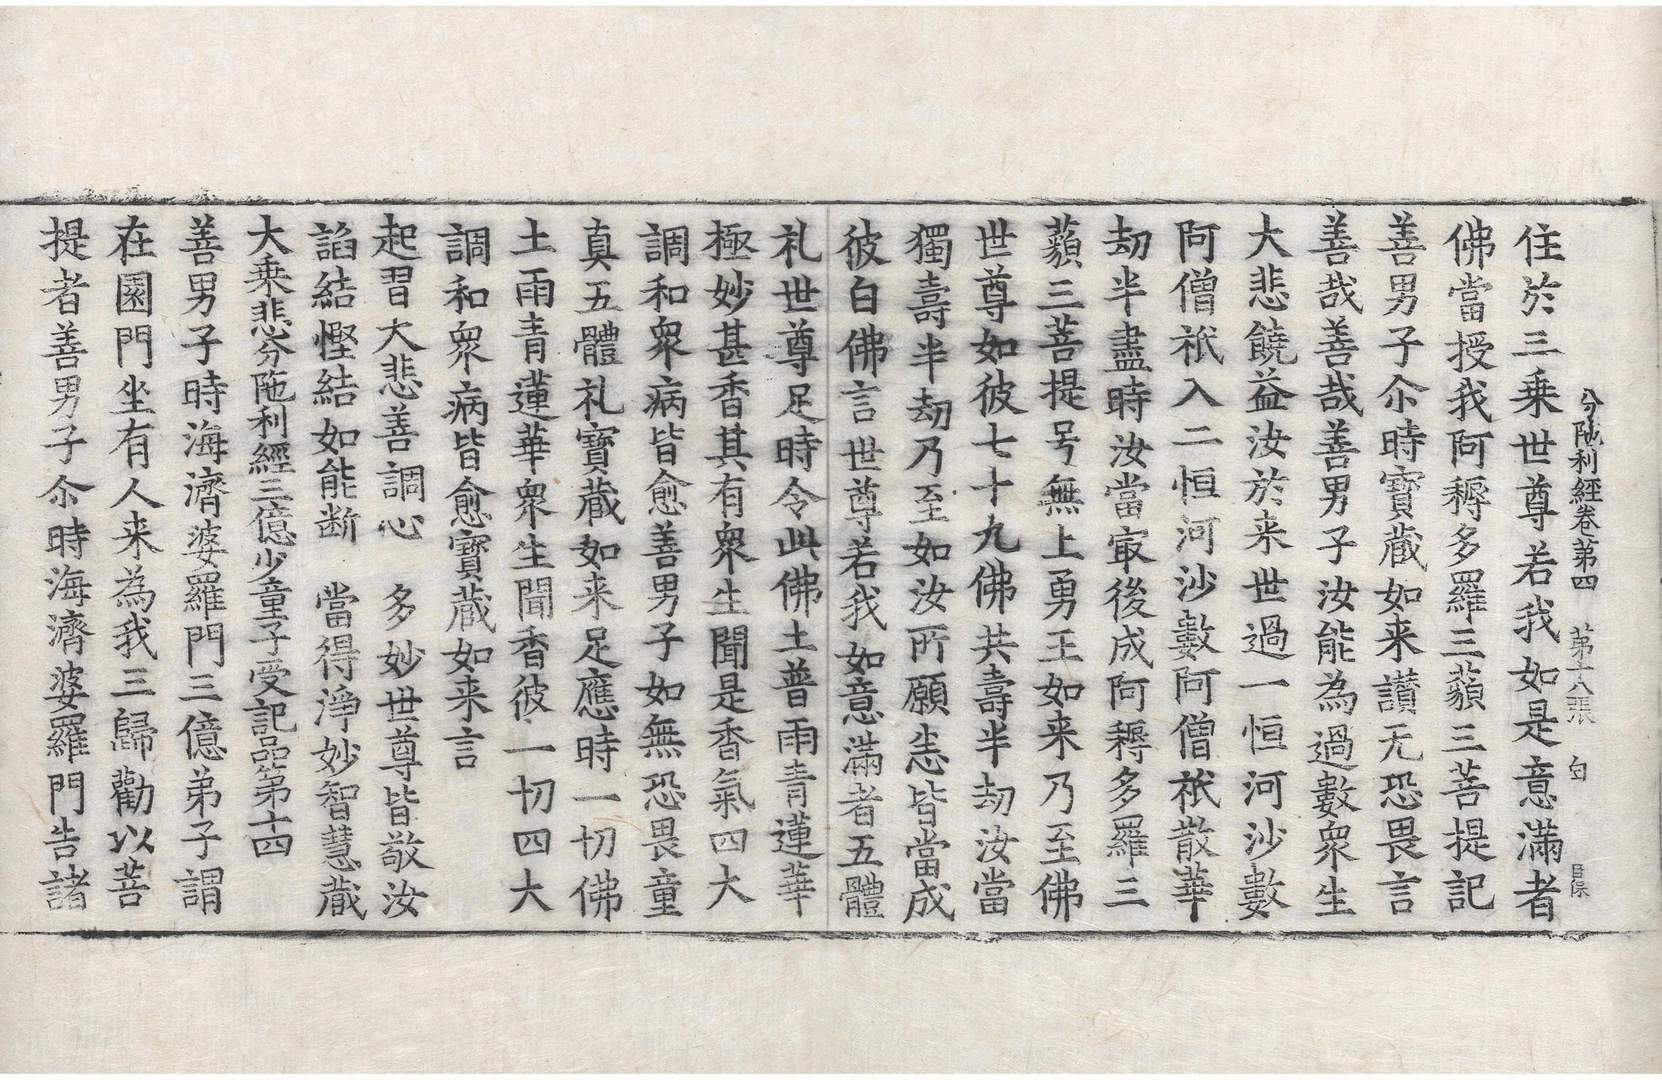 分陁利經卷第四 第十八張 白
住於三乘世尊若我如是意滿者
佛當授我阿耨多羅三藐三菩提記
善男子尒時寶藏如来讃无恐畏言
善哉善哉善男子汝能為過數衆生
大悲饒益汝於来世過一恒河沙數
阿僧祇入二恒河沙數阿僧祇散華
劫半盡時汝當㝡後成阿耨多羅三
藐三菩提号無上勇王如来乃至佛
世尊如彼七十九佛共壽半劫汝當
獨壽半劫乃至如汝所願悉皆當成
彼白佛言世尊若我如意滿者五體
礼世尊足時令此佛土普雨青蓮華
極妙甚香其有衆生聞是香氣四大
調和衆病皆愈善男子如無恐畏童
真五體礼寶藏如来足應時一切佛
土雨青蓮華衆生聞香彼一切四大
調和衆病皆愈寶藏如来言
起習大悲善調心 多妙世尊皆敬汝
諂結慳結如能断 當得淨妙智慧藏
大乘悲分陁利經三億少童子受記品第十四
善男子時海濟婆羅門三億弟子謂
在園門坐有人来為我三歸勸以菩
提者善男子尒時海濟婆羅門告諸